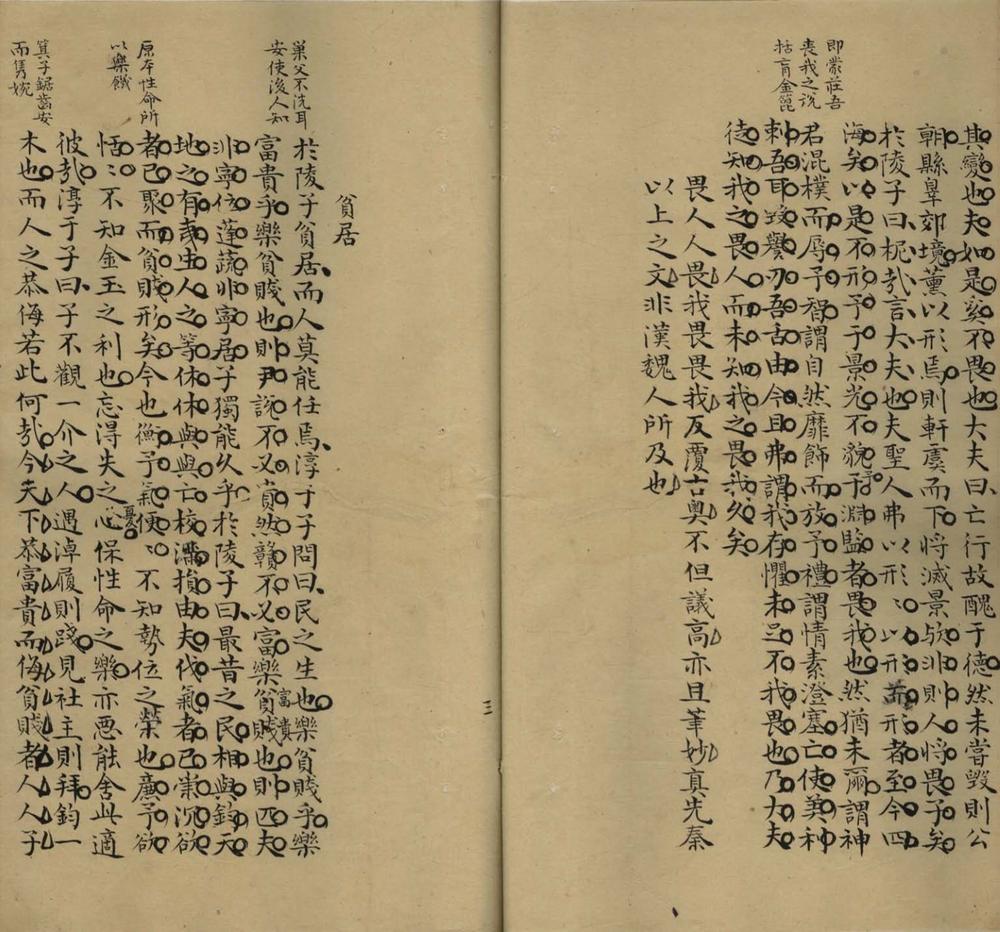 即蒙莊吾
喪我之說
括盲金篦
其變也夫如是奚不畏也大夫曰亡行故醜于德然未嘗毀則公
朝縣皋郊境薰以形焉則軒虞而下將滅景歟非則人將畏予矣
於陵子曰柅哉言大夫也夫聖人弗以形〻以形形者至今四
海矣以是不形予于景光不貌予淵監者畏我也然猶未爾謂神
君混樸而辱予智謂自然靡飾而放予禮謂情素澄塞亡使美種
刺吾耳致譽刃吾舌由今且弗謂我存懼未足不我畏也乃大夫
徒知我之畏人而未知我之畏我久矣
畏人人畏我畏畏我反覆古奧不但議高亦且筆妙真先秦
以上之文非漢魏人所及也
三
貧居
巢父不洗耳
安使後人知
於陵子貧居而人莫能任焉淳于子問曰民之生也樂貧賤乎樂
富貴乎樂貧賤也則尹說不又賁然贛不又富樂富貴貧賤也則匹夫
非寧位蓬蔬非寧居子獨能久乎於陵子曰最昔之民相與鈞天
地之有夷生人之等休休與與亡校滿損由夫伐氣者已崇沉欲
原本性命所
以樂饑
者已聚而貧賤形矣今也衡予氣便〻不知勢位之榮也廉予欲
恬〻不知金玉之利也忘得失之心憂保性命之樂亦惡能舍此適
彼哉淳于子曰子不觀一介之人遇淖履則踐見社主則拜鈞一
箕子鋸齒安
而雋婉
木也而人之恭侮若此何哉今夫下恭富貴而侮貧賤者人人子